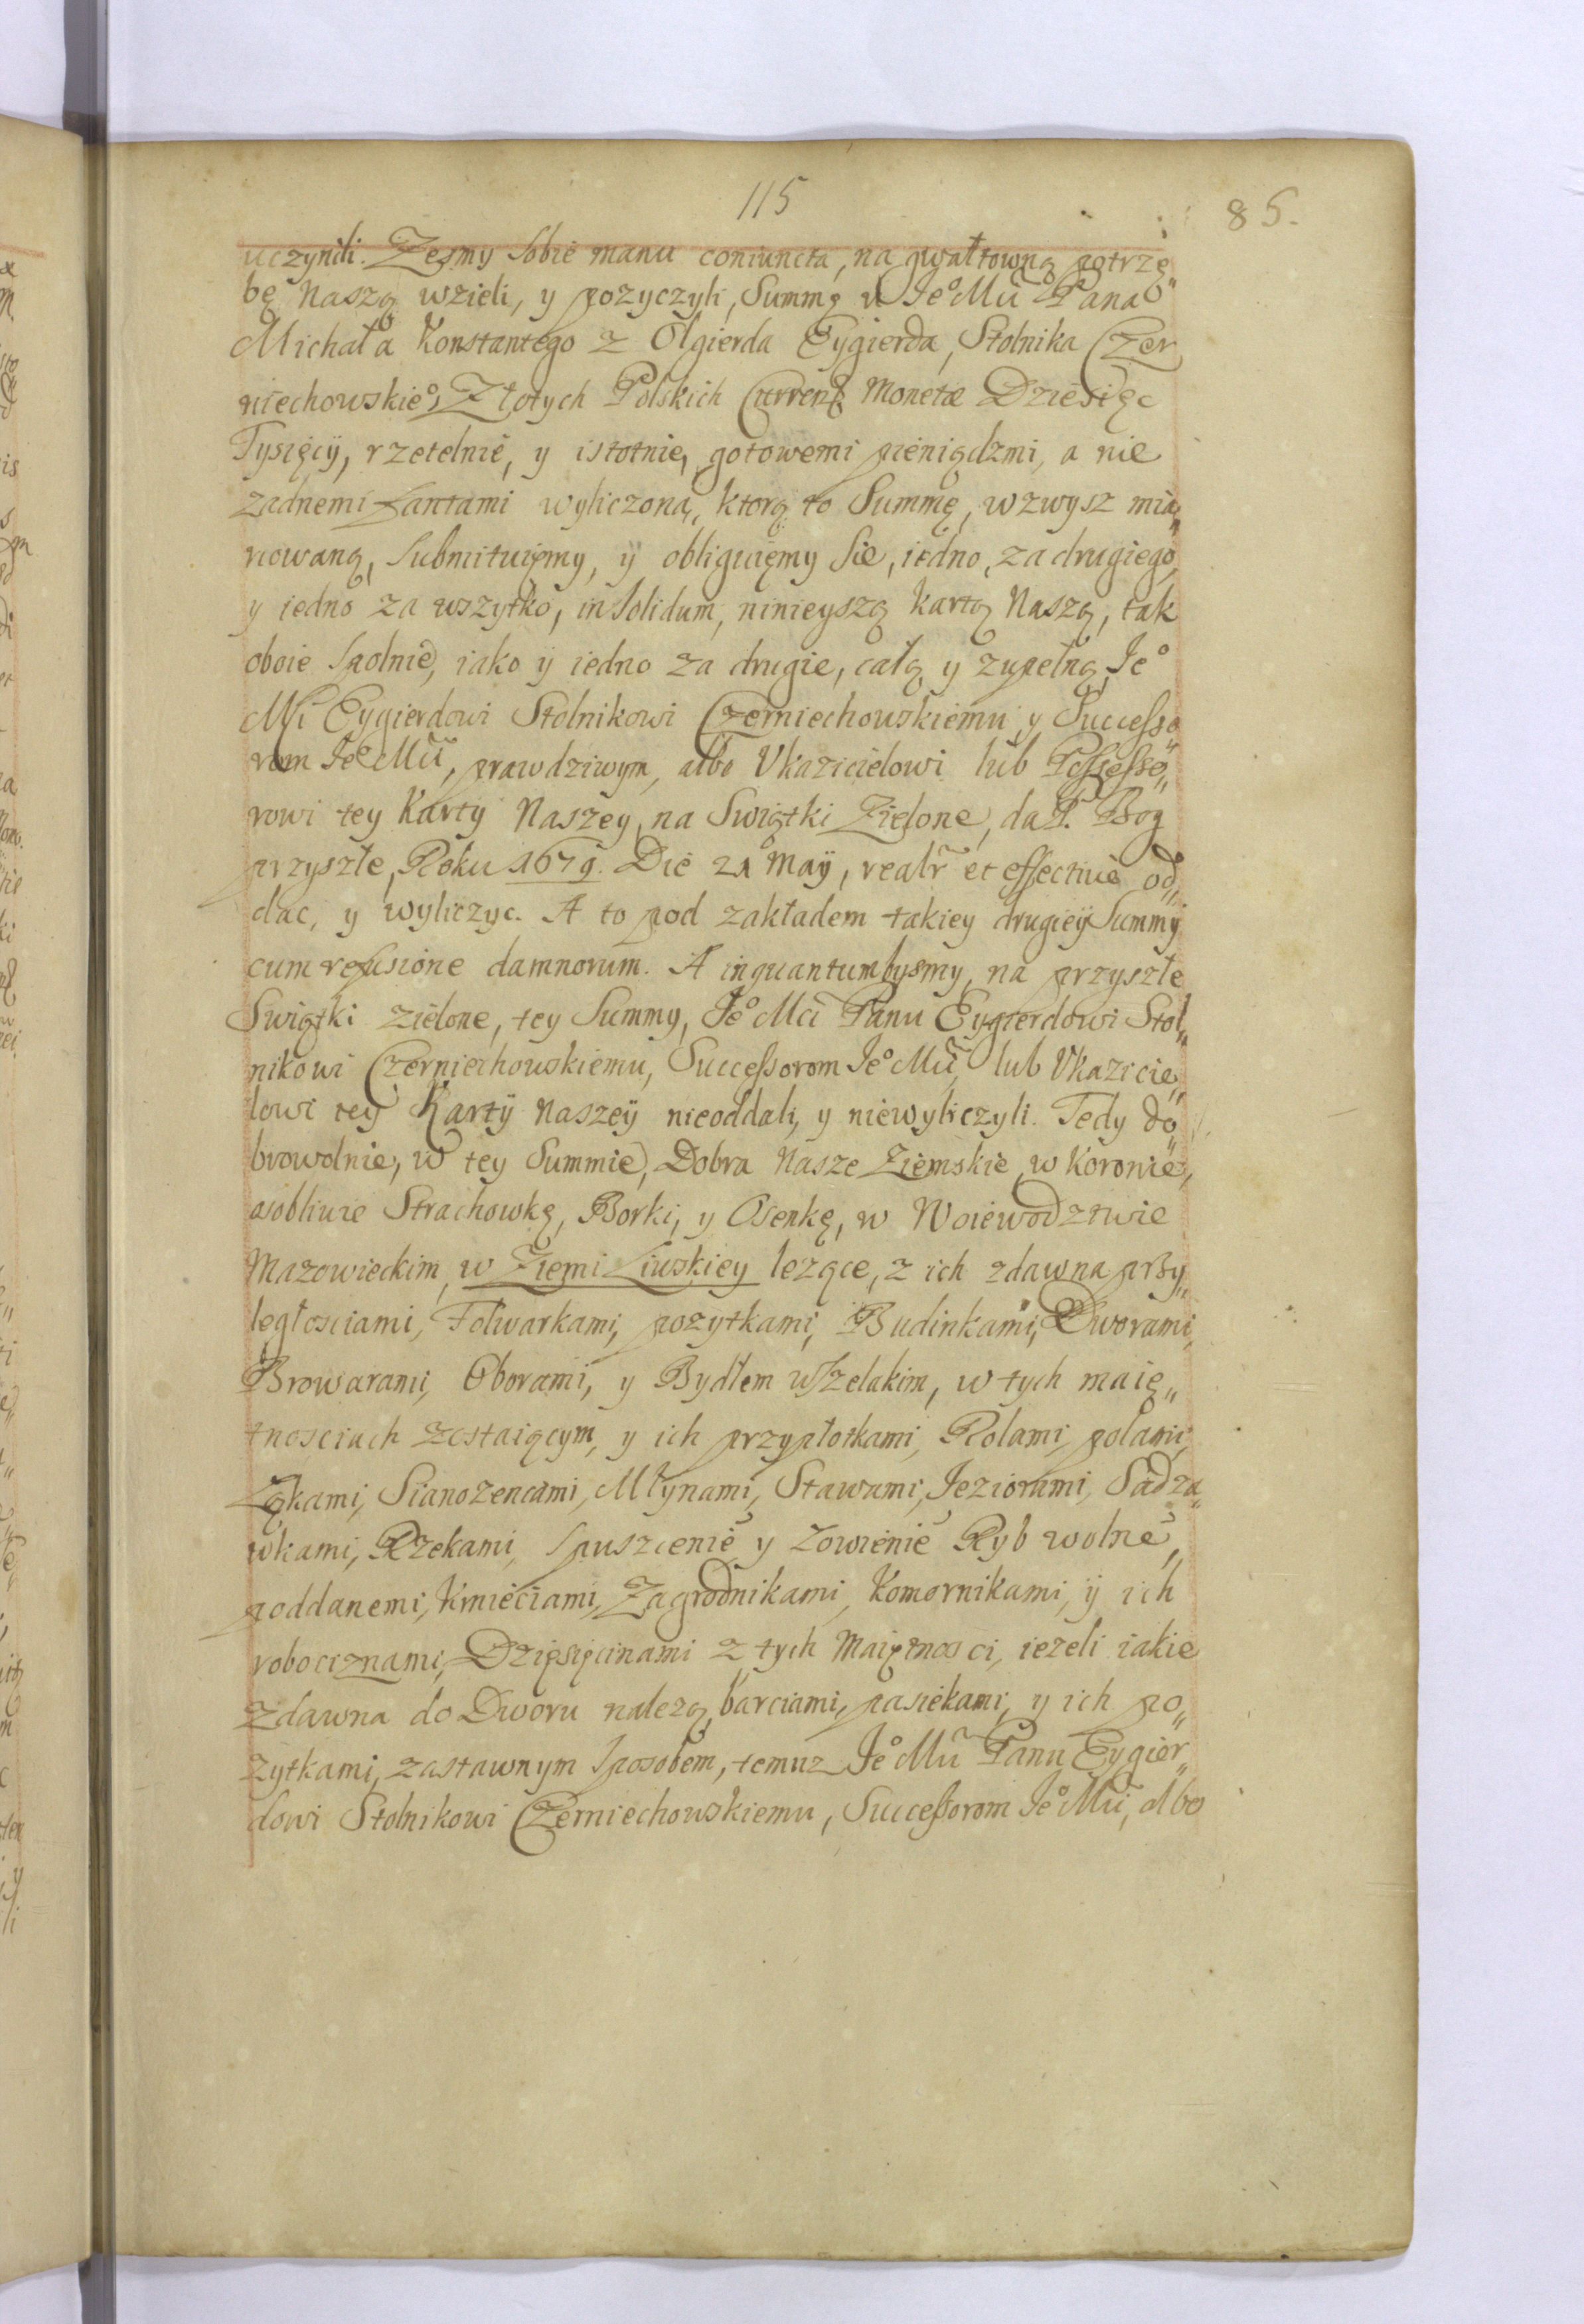 115
85.
uczynili. Zesmy sobie manu coniuncta, na gwałtowną potrzę„
bę Naszą wzieli, y pozyczyli, Summę u Je° Mci Pana
Michała Konstantego z Olgierda Eygierda, Stolnika Czer„
niechowskie°, Złotych Polskich Current Monetæ Dziesięc
Tysięcÿ, rzetelnie, y istotnie, gotowemi pieniądzmi, a nie
zadnemi Fantami wyliczoną, ktorą to Summę, wzwysz mia„
nowaną, submituięmy, ÿ obliguięmy sie, iedno, za drugiego,
y iedno za wszytko, in solidum, ninieyszą kartą Naszą, tak
oboie spolnie, iako ÿ iedno za drugie, całą y zupełną Je°
Mci Eygierdowi Stolnikowi Czerniechowskiemu y Successo„
rom Je° Mci, prawdziwym, albo Vkazicielowi lub Possesso„
rowi tey Kartÿ Naszey, na Swiątki Zielone, da P. Bog
przyszłe, Roku 1679. Die 21 Maÿ, realr et effective od„
dac, y wyliczyc. A to pod zakładem takiey drugieÿ Summÿ
cum refusione damnorum. A inquantumbysmy, na przyszłe
Swiątki zielone, tey Summy, Je° Mci Panu Eygierdowi Stol„
nikowi Czerniechowskiemu, Successorom Je° Mci, lub Vkazicie„
lowi tey Kartÿ Naszeÿ nieoddali, y niewyliczyli. Tedy do„
browolnie, w tey Summie, Dobra Nasze Ziemskie, w Koronie,
osobliwie Strachowkę, Borki, y Osenkę, w Woiewodztwie
Mazowieckim, w Ziemi Liwskiey lezące, z ich zdawna przy„
ległosciami, Folwarkami, pozytkami, Budinkami, Dworami,
Browarami, Oborami, y Bydłem wszelakim, w tych maię„
tnosciach zostaiącym, y ich przypłotkami, Rolami, polami,
Łąkami, Sianozenciami, Młynami, Stawami, Jeziorami, Sadza„
wkami, Rzekami, spuszcenie y Łowienie Ryb wolne,
poddanemi, Kmieciami, Zagrodnikami, Komornikami, ÿ ich
robociznami, Dzięsięcinami z tych Maiętnosci, iezeli iakie
zdawna do Dworu nalezą, barciami, pasiekami, y ich po„
zytkami, zastawnym sposobem, temuz Je° Mci Panu Eygier„
dowi Stolnikowi Czerniechowskiemu, Successorom Je° Mci, albo